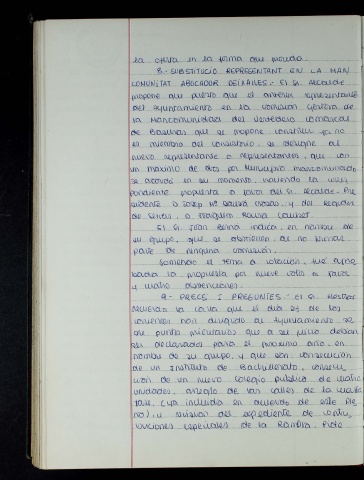 la oferta en la forma que proceda.
8.- SUBSTITUCIÓ REPRESENTANT EN LA MAN
COMUNITAT ABOCADOR DEIXALLES.- El Sr. Alcalde
propone que puesto que el anterior representante
del Ayuntamiento en la Comisión Gestora de
la Mancomunidad del Vertedero Comarcal
de Basuras que se propone constituir ya no
es miembro del consistorio, se designe al
nuevo representante o representantes, que con
un máximo de dos por municipio mancomunado
se acordó en su momento, haciendo la
pondiente propuesta a favor del Sr. Alcalde-Pre
sidente, D. Josep Mª y del Regidor
de Serveis, D. Joaquim
El Sr. Joan indica, en nombre de
su grupo, que se abstienen al no formar
parte de ninguna comisión.
Sometido el tema a votación, fue apro
bada la propuesta por nueve votos a favor
y cuatro abstenciones.
9.- PRECS I PREGUNTES.- El Sr.
la carta que el día 25 de los
corrientes han dirigido al Ayuntamiento, so
bre puntos prioritarios que a su juicio debían
ser declarados para el próximo año, en
nombre de su grupo, y que son: construcción
de un Instituto de Bachillerato, construc
ción de un nuevo Colegio Público de
unidades, arreglo de las calles de la
fase, (ya incluida en acuerdo de este Ple
no), y revisión del expediente de contri
buciones especiales de la Rambla. Pide